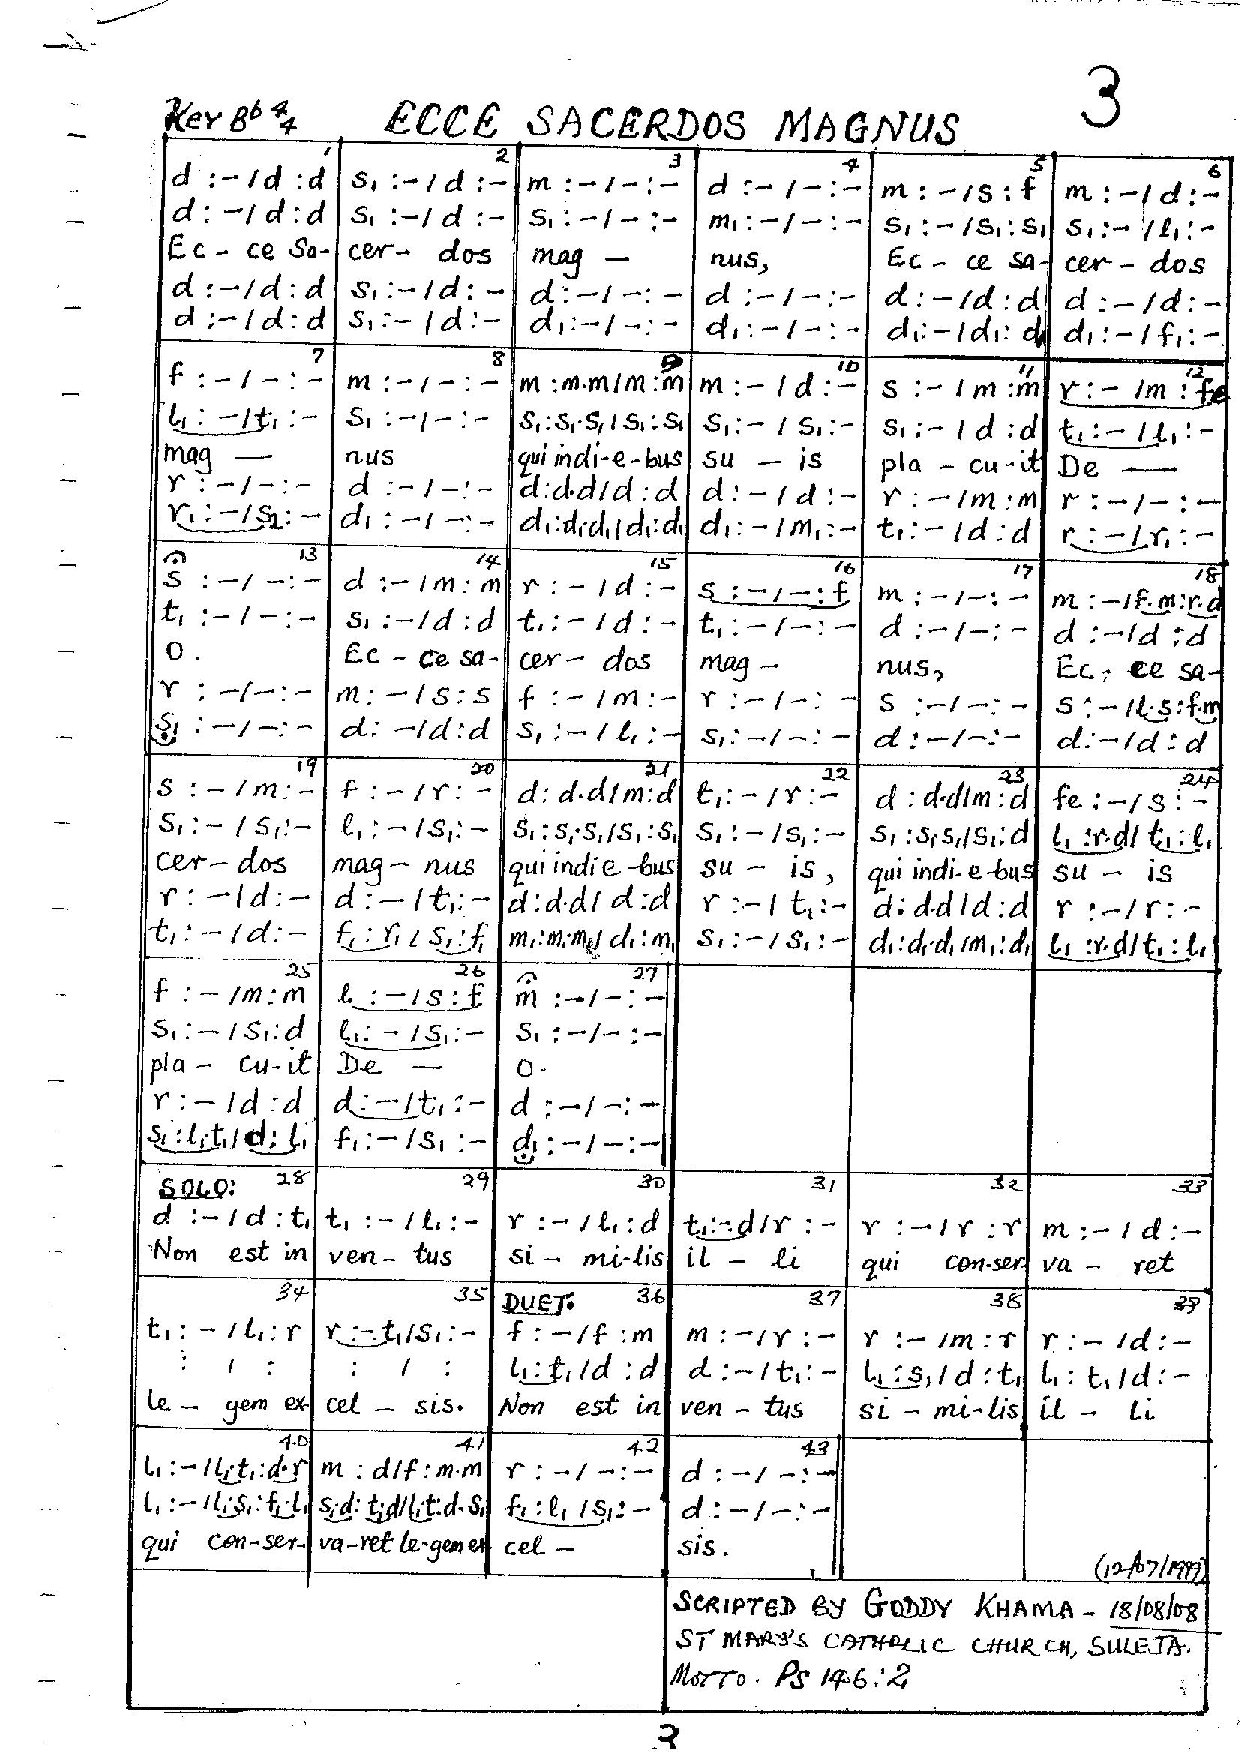 3
Key Bb 4/4 ECCE SACERDOS MAGNUS
1 2 3 4 5 6
d :-/d :d s₁ :-/d :- m :-/-:- d :-/-:- m :-/s :f m :-/d :-
d :-/d :d s₁ :-/d :- s₁ :-/-:- m₁ :-/-:- s₁ :-/s₁ :s₁ s₁ :-/l₁ :-
Ec - ce Sa- cer - dos mag - nus, Ec - ce sa- cer - dos
d :-/d :d s₁ :-/d :- d :-/-:- d :-/-:- d :-/d :d d :-/d :-
d :-/d :d s₁ :-/d :- d₁ :-/-:- d₁ :-/-:- d₁ :-/d₁ :d₁ d₁ :-/f₁ :-
7 8 9 10 11 12
f :-/-:- m :-/-:- m :m.m/m :m m :-/d :- s :-/m :m r :-/m :fe
l₁ :-/t₁ :- s₁ :-/-:- s₁ :s₁.s₁/s₁ :s₁ s₁ :-/s₁ :- s₁ :-/d :d t₁ :-/l₁ :-
mag — nus qui indi-e-bus su - is pla - cu-it De —
r :-/-:- d :-/-:- d :d.d/d :d d :-/d :- r :-/m :m r :-/-:-
r₁ :-/s₂ :- d₁ :-/-:- d₁ :d₁.d₁/d₁ :d₁ d₁ :-/m₁ :- t₁ :-/d :d r :-/r₁ :-
13 14 15 16 17 18
s :-/-:- d :-/m :m r :-/d :- s :-/-:f m :-/-:- m :-/f.m :r.d
t₁ :-/-:- s₁ :-/d :d t₁ :-/d :- t₁ :-/-:- d :-/-:- d :-/d :d
O. Ec - ce sa- cer - dos mag - nus, Ec - ce sa-
r :-/-:- m :-/s :s f :-/m :- r :-/-:- s :-/-:- s :-/l.s :f.m
s₁ :-/-:- d :-/d :d s₁ :-/l₁ :- s₁ :-/-:- d :-/-:- d :-/d :d
19 20 21 22 23 24
s :-/m :- f :-/r :- d :d.d/m :d t₁ :-/r :- d :d.d/m :d fe :-/s :-
s₁ :-/s₁ :- l₁ :-/s₁ :- s₁ :s₁.s₁/s₁ :s₁ s₁ :-/s₁ :- s₁ :s₁.s₁/s₁ :d l₁ :r.d/t₁ :l₁
cer - dos mag - nus qui indi e-bus su - is, qui indi-e-bus su - is
r :-/d :- d :-/t₁ :- d :d.d/d :d r :-/t₁ :- d :d.d/d :d r :-/r :-
t₁ :-/d :- f₁ :r₁/s₁ :f₁ m₁ :m₁.m₁/d₁ :m₁ s₁ :-/s₁ :- d₁ :d₁.d₁/m₁ :d₁ l₁ :r.d/t₁ :l₁
25 26 27
f :-/m :m l :-/s :f m :-/-:-
s₁ :-/s₁ :d l₁ :-/s₁ :- s₁ :-/-:-
pla - cu-it De — O.
r :-/d :d d :-/t₁ :- d :-/-:-
s₁ :l₁.t₁/d :l₁ f₁ :-/s₁ :- d₁ :-/-:-
SOLO: 28 29 30 31 32 33
d :-/d :t₁ t₁ :-/l₁ :- r :-/l₁ :d t₁ :-d/r :- r :-/r :r m :-/d :-
Non est in ven - tus si - mi-lis il - li qui con-ser- va - ret
34 35 DUET: 36 37 38 39
t₁ :-/l₁ :r r :-t₁/s₁ :- f :-/f :m m :-/r :- r :-/m :r r :-/d :-
: / : : / : l₁ :t₁/d :d d :-/t₁ :- l₁ :s₁/d :t₁ l₁ :t₁/d :-
le - gem ex- cel - sis. Non est in ven - tus si - mi-lis il - li
40 41 42 43
l₁ :-/l₁.t₁ :d.r m :d/f :m.m r :-/-:- d :-/-:-
l₁ :-/l₁.s₁ :f₁.l₁ s₁.d :t₁.d/l₁.t₁ :d.s₁ f₁ :l₁/s₁ :- d :-/-:-
qui con-ser- va-ret le-gem ex cel - sis.
(12/07/1999)
SCRIPTED BY GODDY KHAMA - 18/08/08
ST MARY'S CATHOLIC CHURCH, SULEJA.
MOTTO. Ps 146:2
3